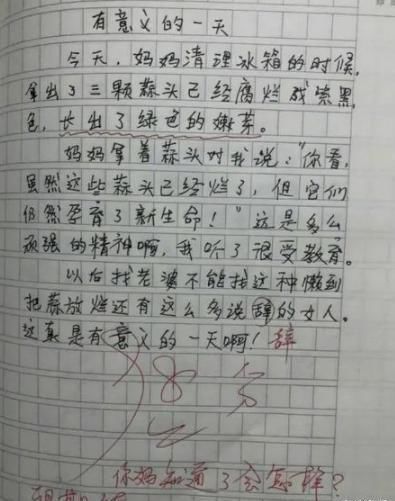 有意义的一天
今天，妈妈清理冰箱的时候，
拿出了三颗蒜头已经腐烂成紫黑
色，长出了绿色的嫩芽。
妈妈拿着蒜头对我说："你看，
虽然这些蒜头已经烂了，但它们
仍然孕育了新生命！"这是多么
顽强的精神啊，我听了很受教育。
以后找老婆不能找这种懒到
把蒜放烂还有这么多说辞的女人。
这真是有意义的一天啊！辞
你妈知道了会怎样？